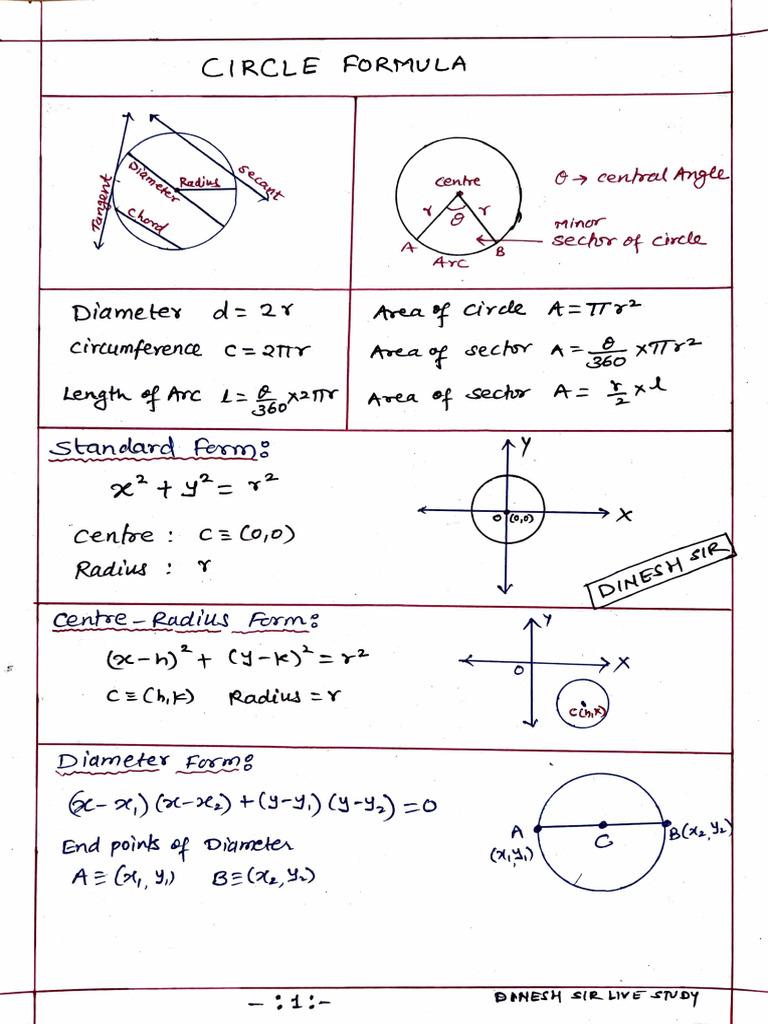 CIRCLE FORMULA
Tangent
Diameter
Radius
Chord
secant
centre
r
θ
r
A
B
Arc
θ → central Angle
Minor
sector of circle
Diameter d = 2r
Circumference C = 2πr
Length of Arc l = θ/360 × 2πr
Area of circle A = πr²
Area of sector A = θ/360 × πr²
Area of sector A = r/2 × l
Standard Form:
x² + y² = r²
Centre : C ≡ (0,0)
Radius : r
Y
X
O (0,0)
DINESH SIR
Centre-Radius Form:
(x-h)² + (y-k)² = r²
C ≡ (h,k) Radius = r
Y
X
O
C(h,k)
Diameter Form:
(x-x₁)(x-x₂) + (y-y₁)(y-y₂) = 0
End points of Diameter
A ≡ (x₁, y₁) B ≡ (x₂, y₂)
A
(x₁,y₁)
C
B(x₂,y₂)
-:1:-
DINESH SIR LIVE STUDY